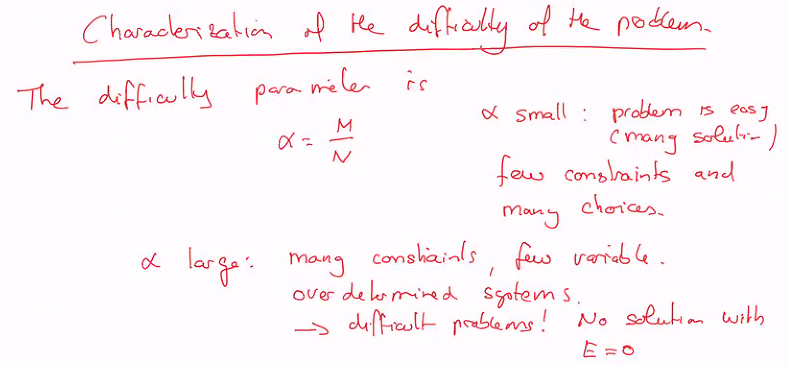 Characterization of the difficulty of the problem.
The difficulty parameter is
α = M/N
α small : problem is easy
(many solution)
few constraints and
many choices.
α large : many constraints, few variable.
over determined systems.
→ difficult problems! No solution with
E = 0